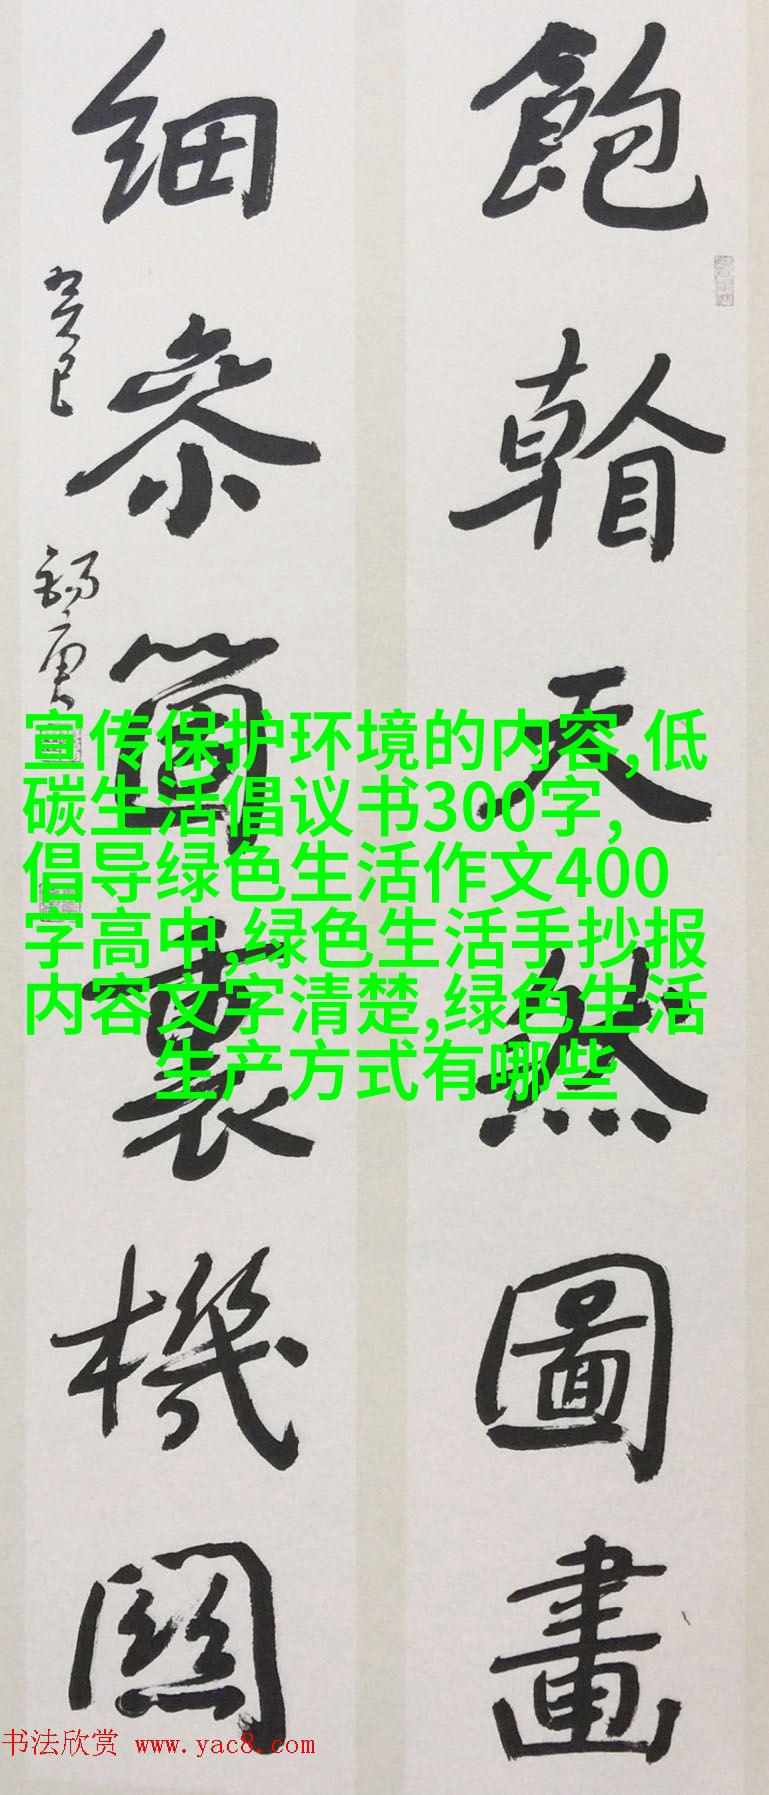 飽天然圖畫
細參箇裏機關
癸巳
宣传保护环境的内容,低
碳生活倡议书300字,
倡导绿色生活作文400
字高中,绿色生活手抄报
内容文字清楚,绿色生活
生产方式有哪些
书法欣赏 www.yac8.com